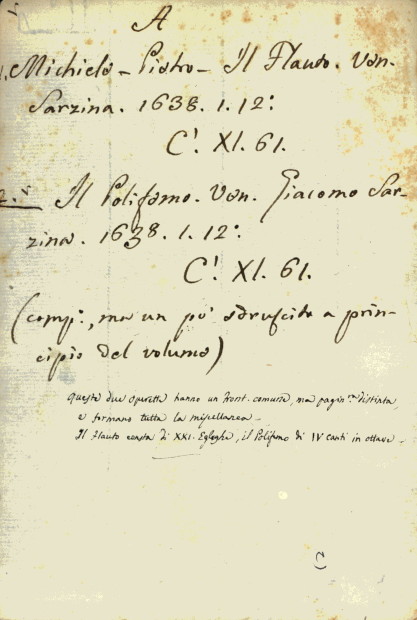 A
1. Michiele - Pietro - Il Flauto. Ven.
Sarzina. 1638. 1. 12:
C! XI. 61.
2. Il Polifemo. Ven. Giacomo Sar-
zina. 1638. 1. 12:
C! XI. 61.
(comp:, ma un pò sdruscito a prin-
cipio del volume)
Queste due operette hanno un front. comune, ma pagin.ne distinta,
e formano tutta la miscellanea -
Il Flauto consta di XXI. Egloghe, il Polifemo di IV Canti in ottave -
C